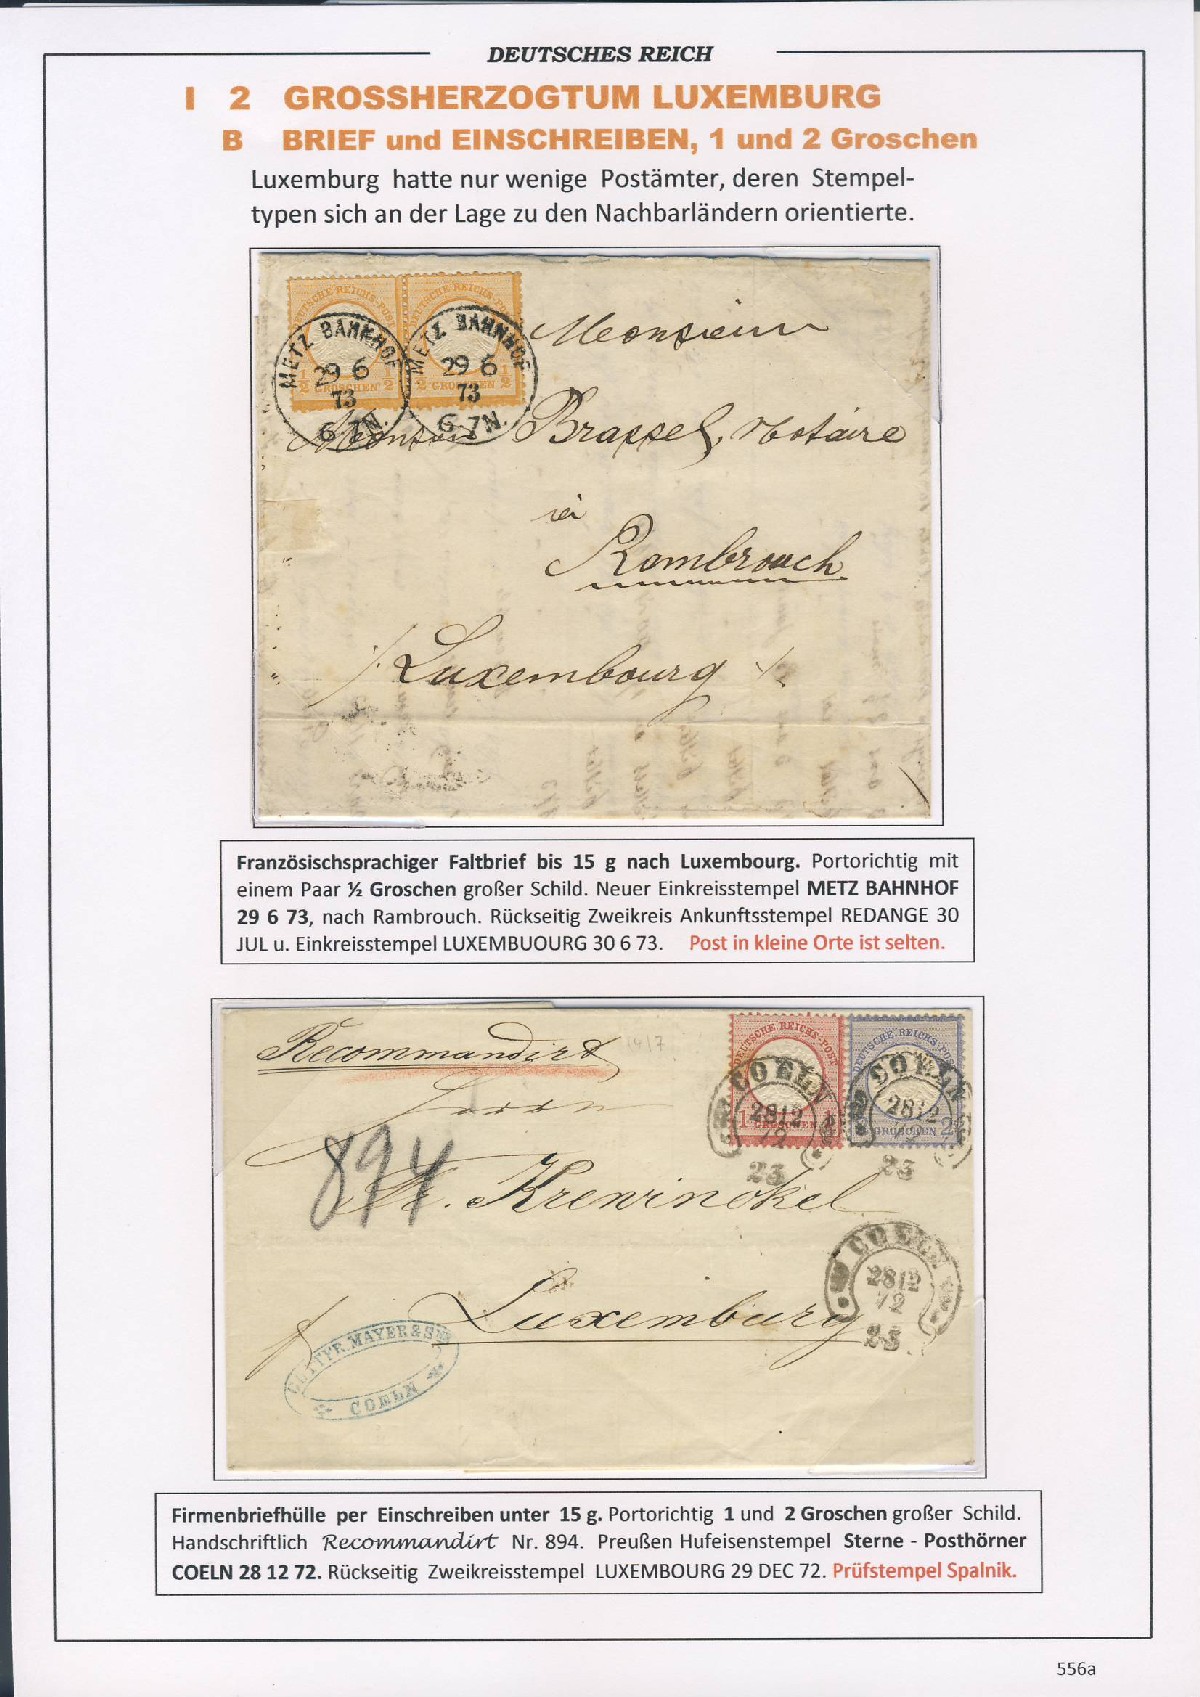 DEUTSCHES REICH
I 2 GROSSHERZOGTUM LUXEMBURG
B BRIEF und EINSCHREIBEN, 1 und 2 Groschen
Luxemburg hatte nur wenige Postämter, deren Stempel-
typen sich an der Lage zu den Nachbarländern orientierte.
DEUTSCHE REICHS-POST
½ GROSCHEN ½
METZ BAHNHOF
29 6
73
6-7N.
METZ BAHNHOF
29 6
73
6-7N.
Monsieur
Brassel, Notaire
Rambrouch
Luxembourg
Französischsprachiger Faltbrief bis 15 g nach Luxembourg. Portorichtig mit
einem Paar ½ Groschen großer Schild. Neuer Einkreisstempel METZ BAHNHOF
29 6 73, nach Rambrouch. Rückseitig Zweikreis Ankunftsstempel REDANGE 30
JUL u. Einkreisstempel LUXEMBUOURG 30 6 73. Post in kleine Orte ist selten.
Recommandirt
1417
Herrn
894
Krewinckel
Luxemburg
DEUTSCHE REICHS-POST
1 GROSCHEN 1
DEUTSCHE REICHS-POST
2 GROSCHEN 2
COELN
28 12
72
23
COELN
28 12
72
23
COELN
28 12
72
23
MAYER &
COELN
Firmenbriefhülle per Einschreiben unter 15 g. Portorichtig 1 und 2 Groschen großer Schild.
Handschriftlich Recommandirt Nr. 894. Preußen Hufeisenstempel Sterne - Posthörner
COELN 28 12 72. Rückseitig Zweikreisstempel LUXEMBOURG 29 DEC 72. Prüfstempel Spalnik.
556a